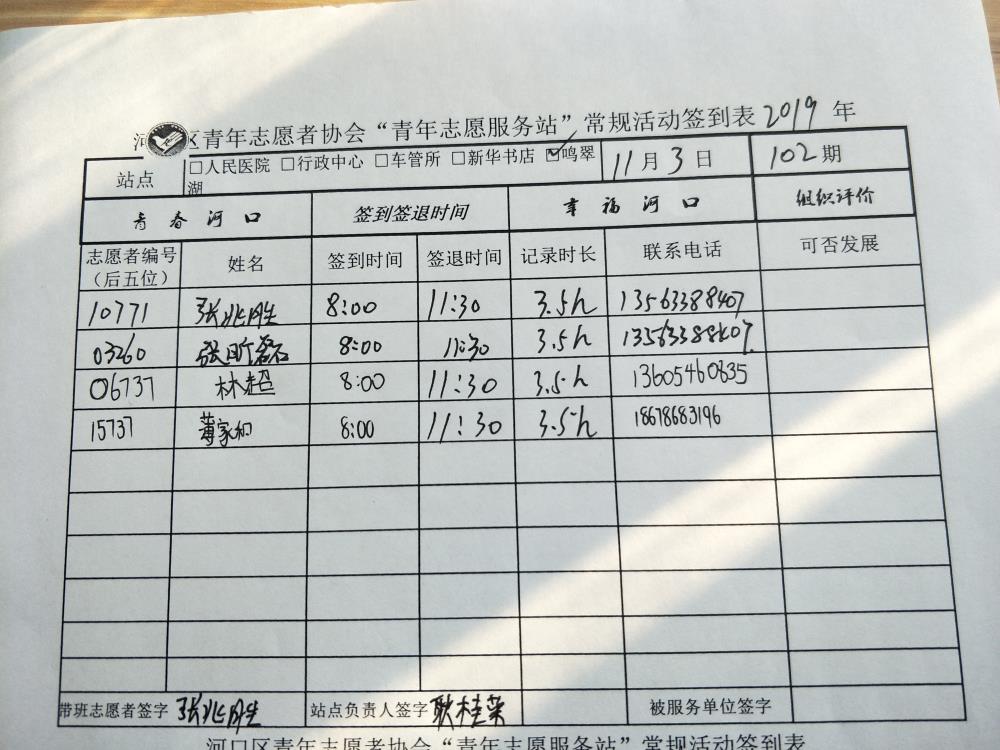 河口区青年志愿者协会“青年志愿服务站”常规活动签到表 2019 年
站点 □人民医院 □行政中心 □车管所 □新华书店 ☑鸣翠湖 11月3日 102期
青春河口 签到签退时间 幸福河口 组织评价
志愿者编号（后五位） 姓名 签到时间 签退时间 记录时长 联系电话 可否发展
10771 张兆胜 8:00 11:30 3.5h 13563388407
03260 张昕磊 8:00 11:30 3.5h 13563388407
06737 林超 8:00 11:30 3.5h 13605460835
15737 8:00 11:30 3.5h 18678683196
带班志愿者签字 张兆胜 站点负责人签字 耿桂荣 被服务单位签字
河口区青年志愿者协会“青年志愿服务站”常规活动签到表